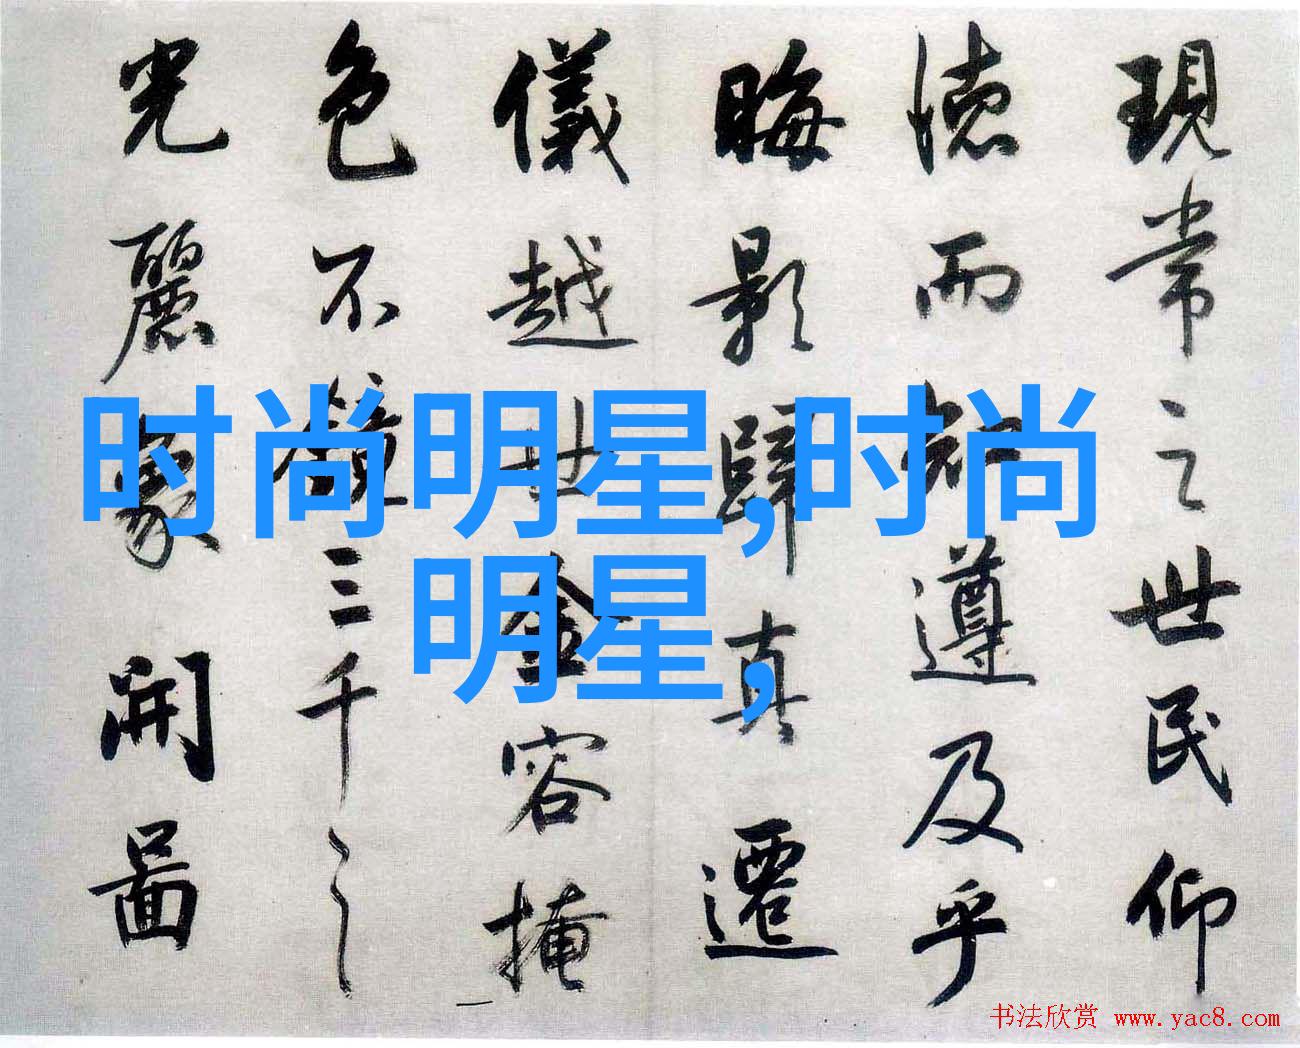 現常之世民仰
德而知遵及乎
晦影歸真遷
儀越世金容掩
色不鏡三千之
光麗象開圖
时尚明星,时尚
明星,
书法欣赏 www.yac8.com